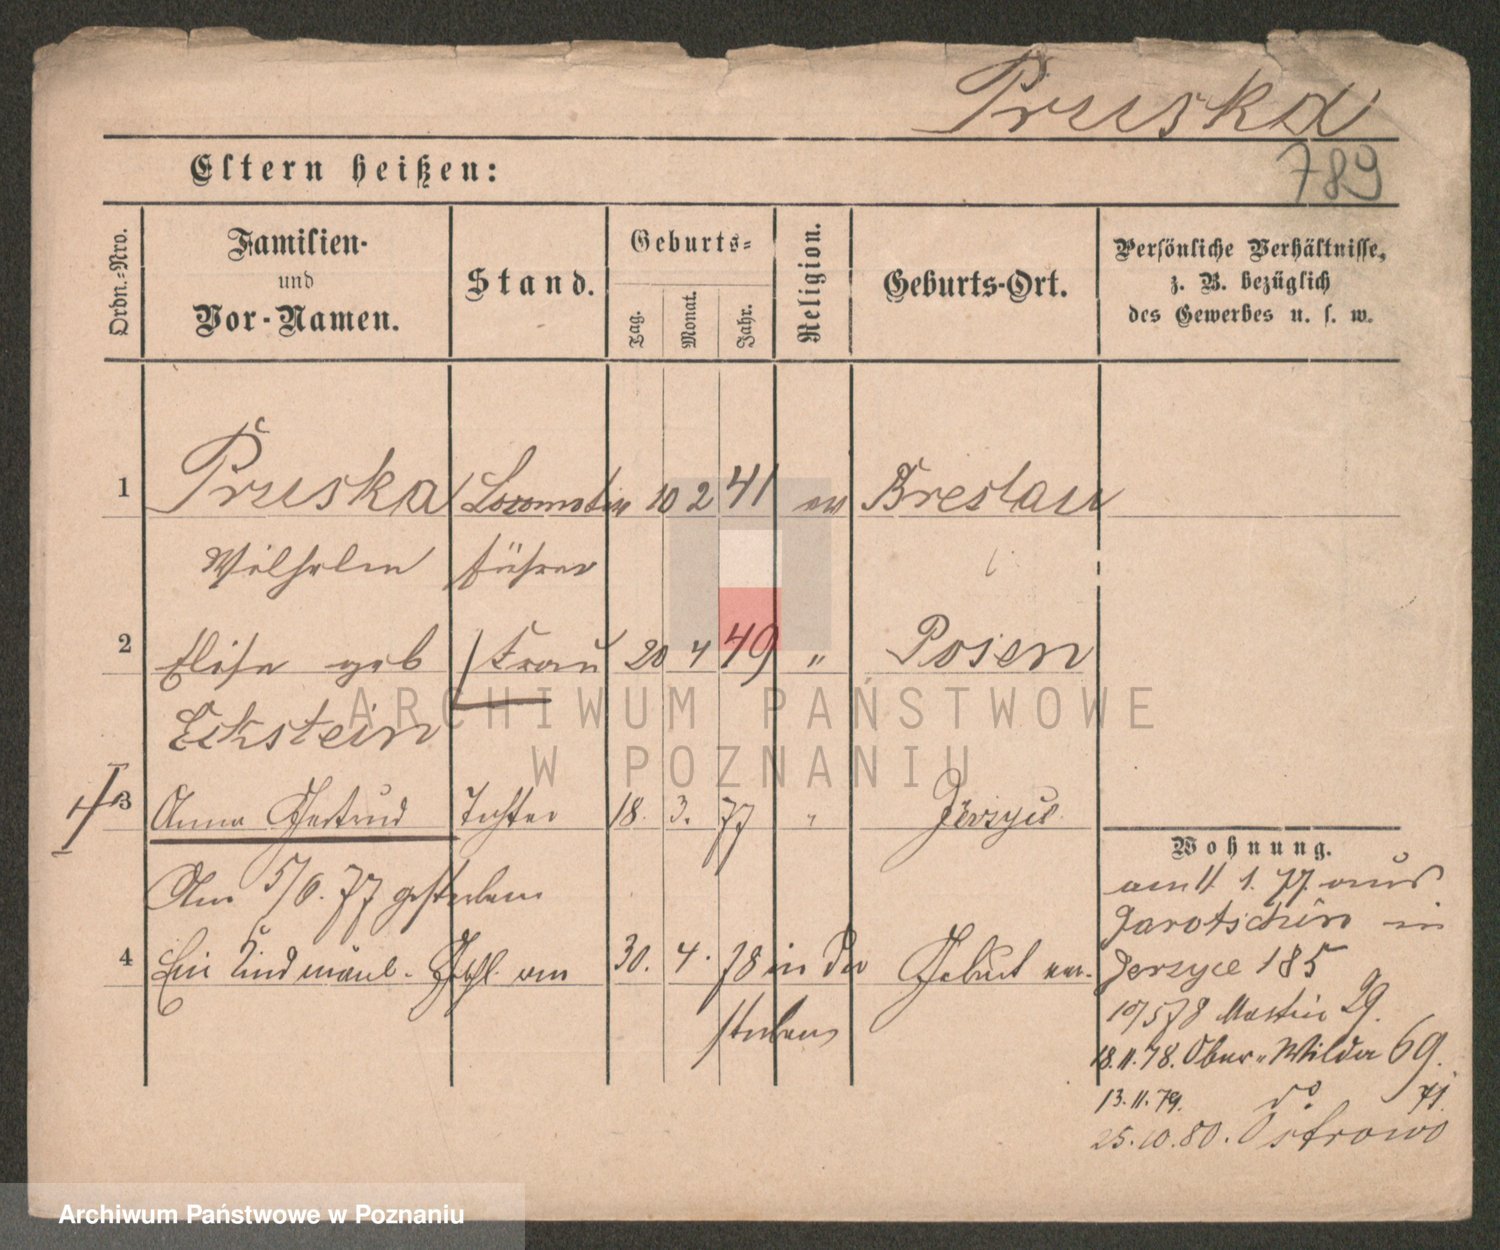 Pruska
789
Eltern heißen:
Ordn.-Nro.
Familien-
und
Vor-Namen.
Stand.
Geburts-
Tag.
Monat.
Jahr.
Religion.
Geburts-Ort.
Persönliche Verhältnisse,
z. B. bezüglich
des Gewerbes u. s. w.
1 Pruska Locomotiv 10 2 41 ev Breslau
Wilhelm führer
2 Elise geb Frau 20 4 49 " Posen
Eckstein
3 Anna Gertrud Tochter 18. 3. 77 " Jersyce
Am 5/6. 77 gestorben
4 Ein Kind männl. Geschl. am 30. 4. 78 in der Geburt ver-
storben
Wohnung.
am 11. 1. 77 aus
Jarotschin in
Jersyce 185
10/5 78 Martin 29.
18.11.78. Ober-Wilda 69.
13.11.79. do 71.
25.10.80. Ostrowo
ARCHIWUM PAŃSTWOWE
W POZNANIU
Archiwum Państwowe w Poznaniu